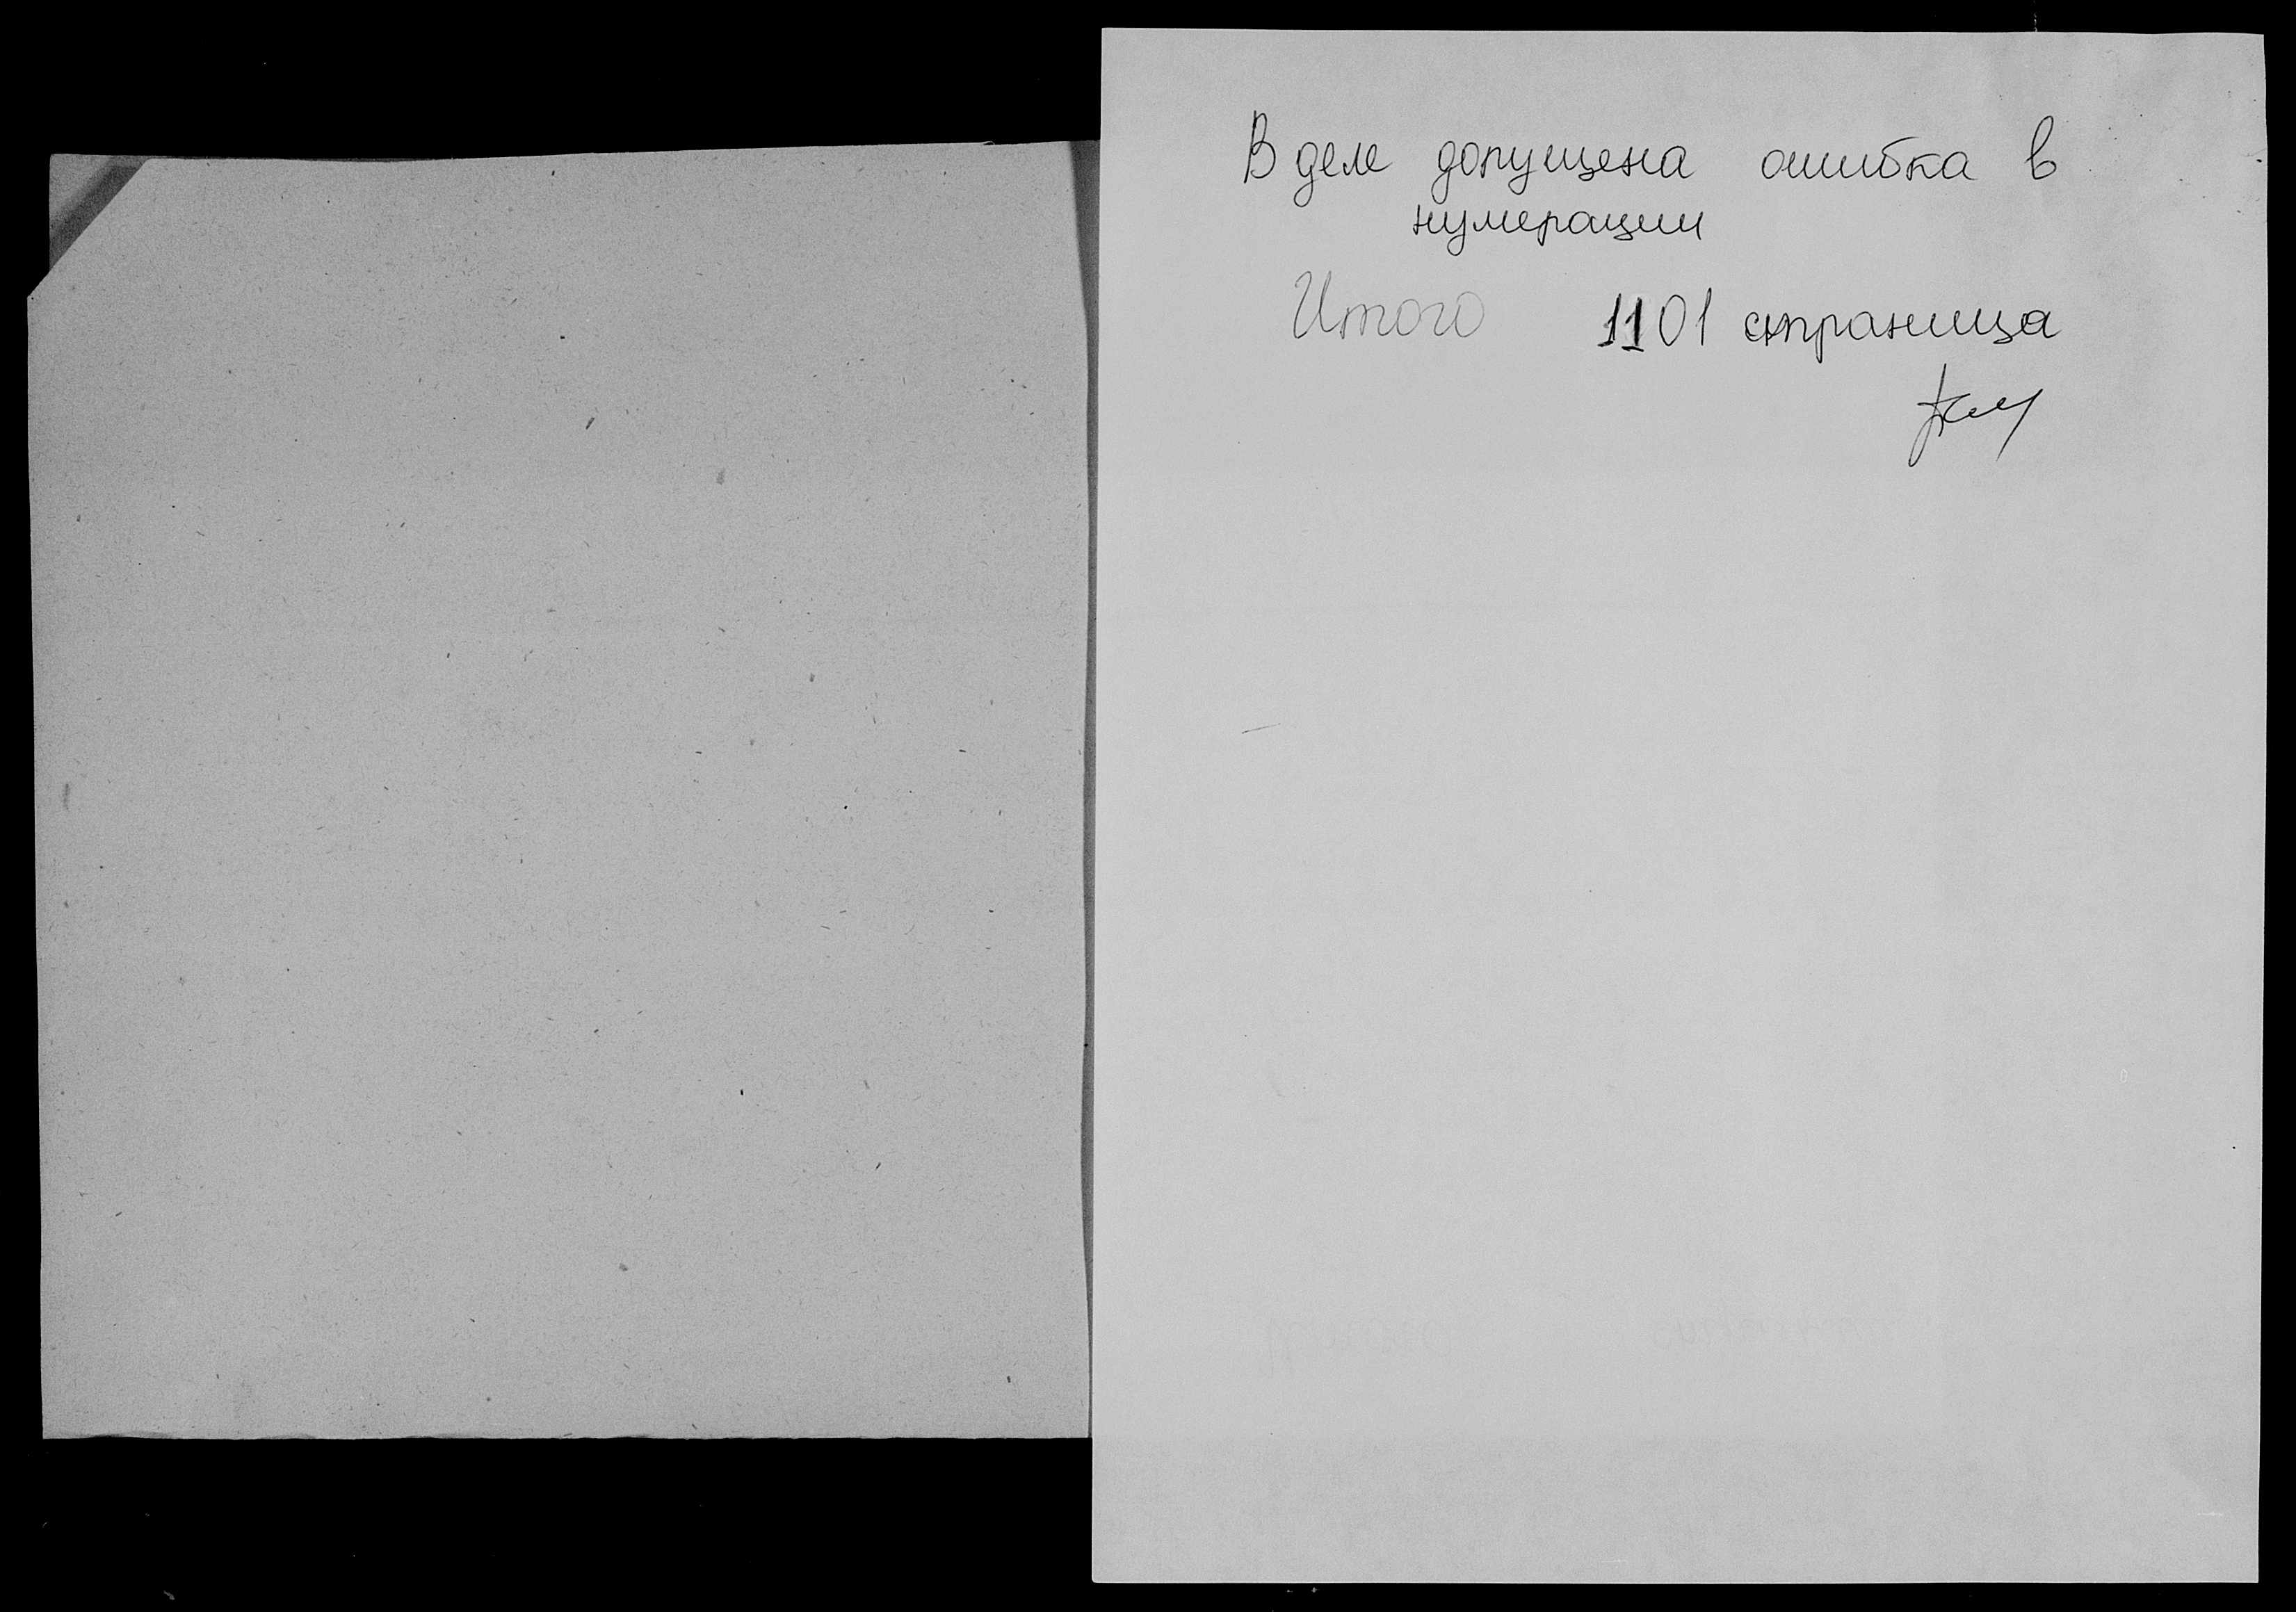 В деле допущена ошибка в
нумерации
Итого 1101 страница